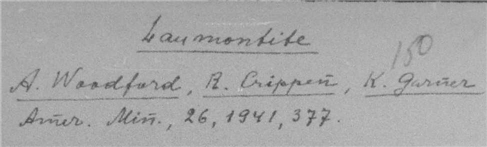 Laumontite
150
A. Woodford, R. Crippen, K. Garner
Amer. Min., 26, 1941, 377.